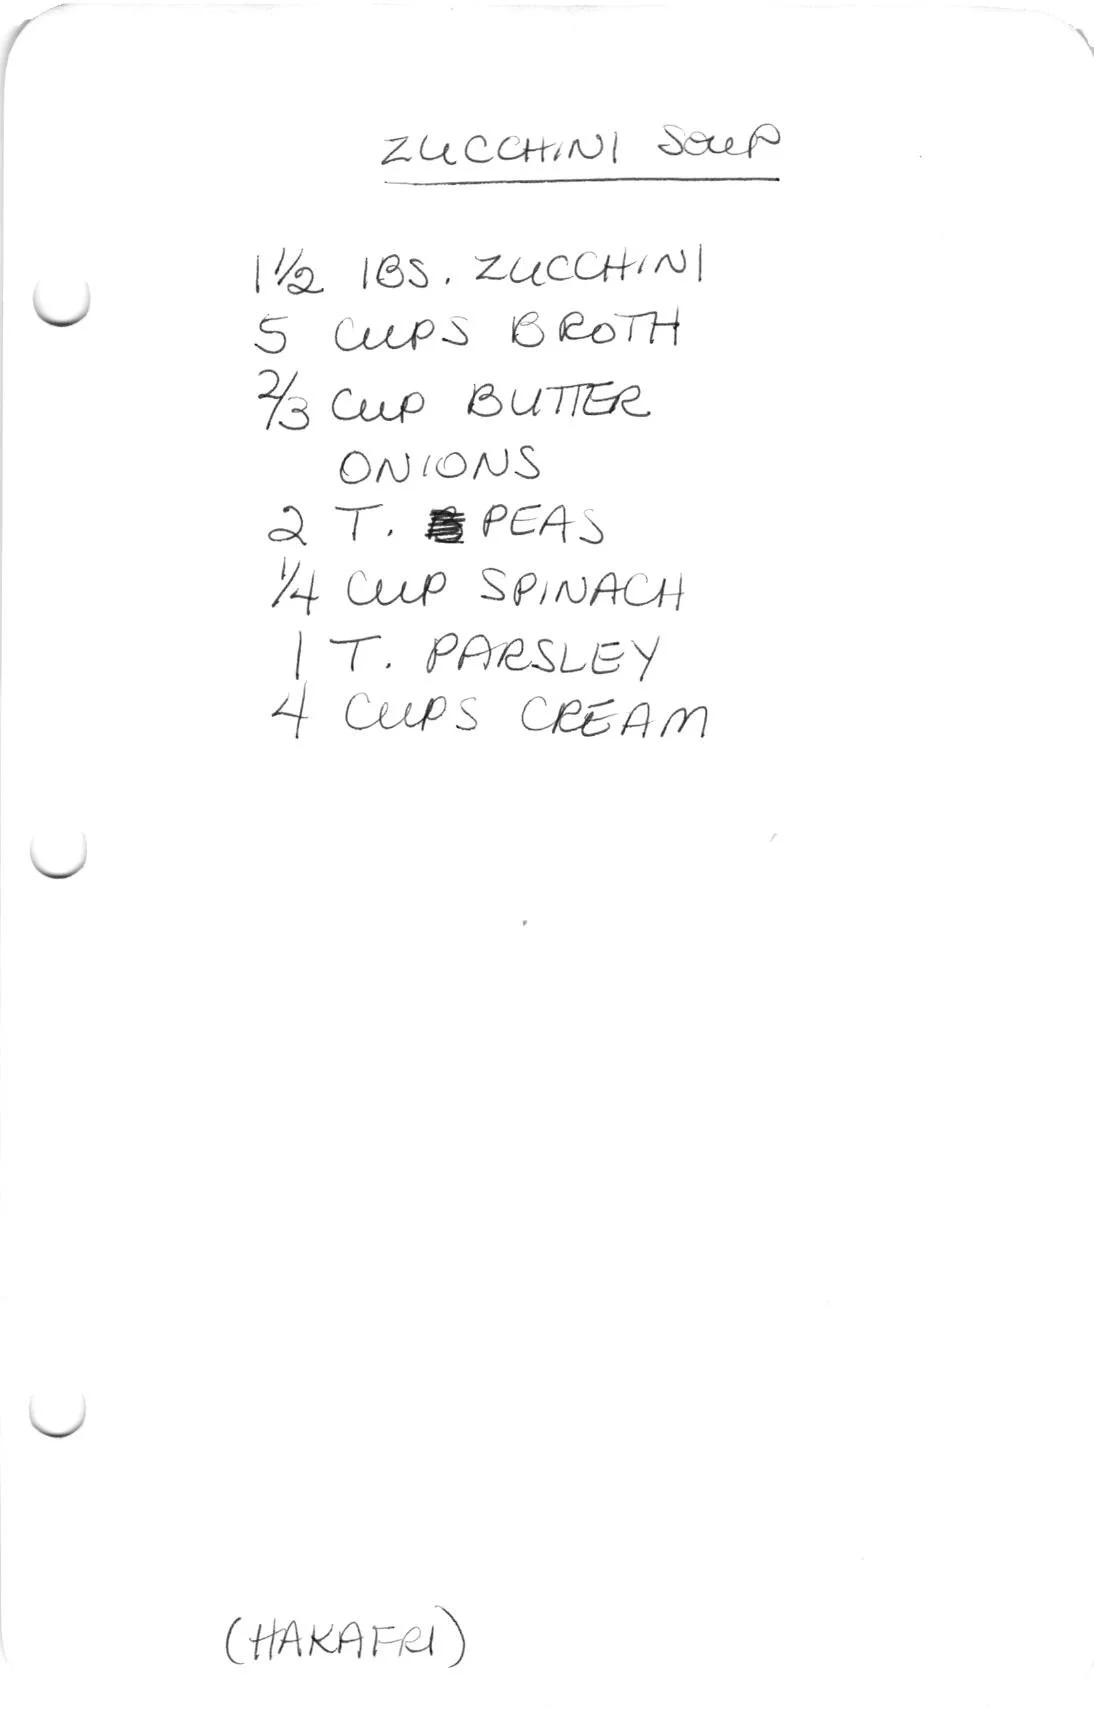 ZUCCHINI SOUP
1 1/2 lBS. ZUCCHINI
5 CUPS BROTH
2/3 CUP BUTTER
ONIONS
2 T. PEAS
1/4 CUP SPINACH
1 T. PARSLEY
4 CUPS CREAM
(HAKAFRI)